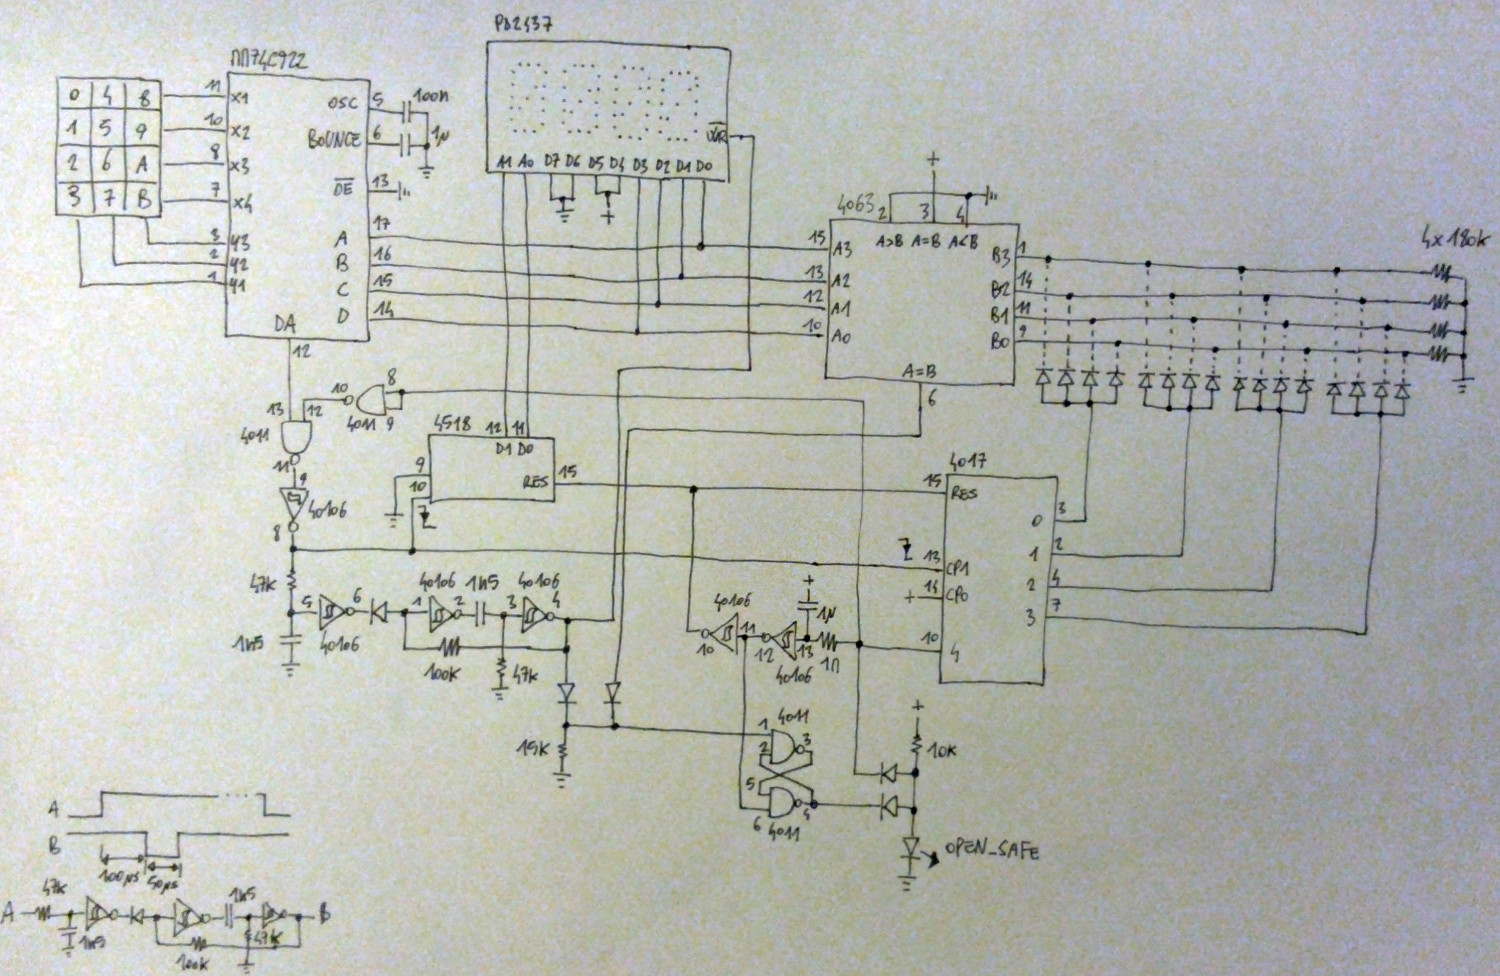 MM74C922
0 4 8
1 5 9
2 6 A
3 7 B
11 X1
10 X2
8 X3
7 X4
3 Y3
2 Y2
1 Y1
OSC 5
100n
BOUNCE 6
1µ
OE 13
A 17
B 16
C 15
D 14
DA
12
PD2437
WR
A1 A0 D7 D6 D5 D4 D3 D2 D1 D0
+
4063
+
2 3 4
A>B A=B A<B
15 A3
13 A2
12 A1
10 A0
B3 1
B2 14
B1 11
B0 9
A=B
6
4x180k
13 12
4011
11
10 8
4011 9
9
40106
8
4518
12 11
D1 D0
9
10
RES 15
4017
15 RES
13 CP1
+ 14 CP0
10 4
0 3
1 2
2 4
3 7
47k
1n5
5 6
40106
40106
1 2
1n5
3 40106 4
100k
47k
15k
40106
10 11
12 13
40106
+
1µ
1
2 3
4011
5
6 4
4011
+
10k
OPEN_SAFE
A
B
100µs 50µs
A 47k
1n5
1n5
47k
100k
B